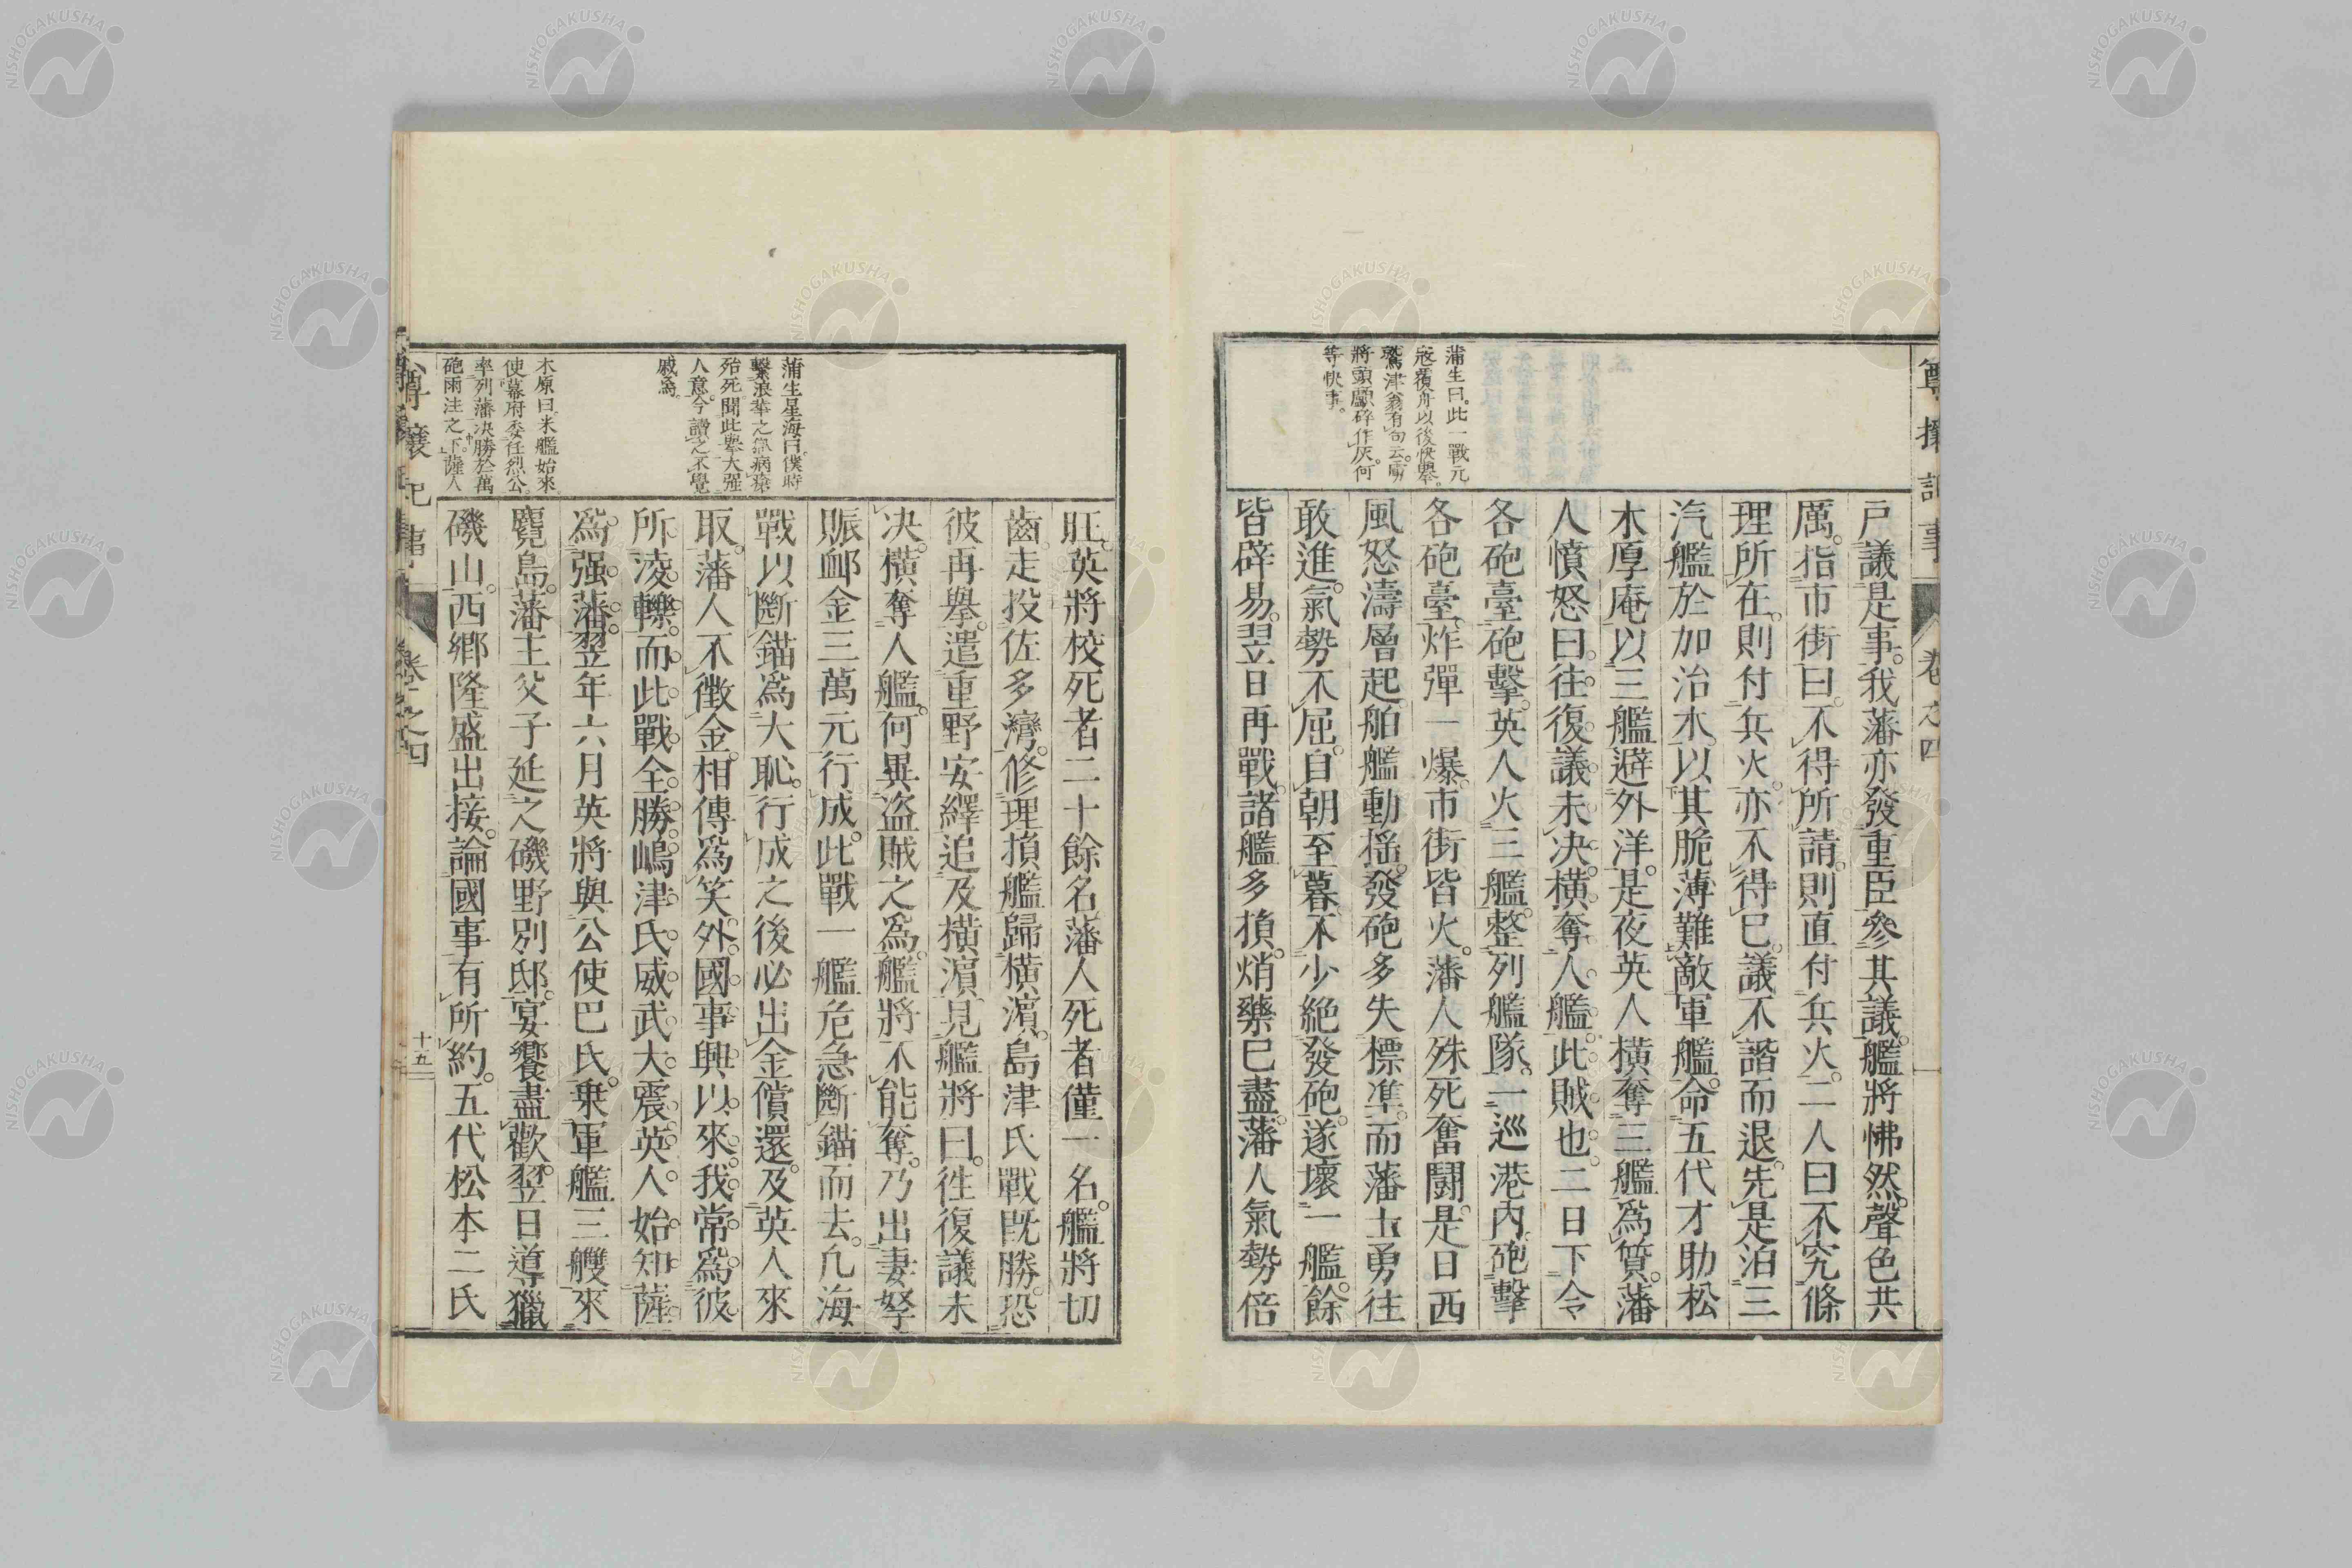 戸議是事。我藩亦發重臣參其議。艦將怫然。聲色共
厲。指市街曰。不得所請。則直付兵火。二人曰不究條
理所在。則付兵火。亦不得已。議不諧而退。先是泊三
汽艦於加治木。以其脆薄難敵軍艦。命五代才助松
木厚庵以三艦避外洋。是夜英人橫奪三艦爲質。藩
人憤怒曰。往復議未決。橫奪人艦。此賊也。二日下令
各砲臺砲擊。英人火三艦。整列艦隊。一巡港內。砲擊
各砲臺。炸彈一爆。市街皆火。藩人殊死奮鬪。是日西
風怒濤層起。舶艦動搖。發砲多失標準。而藩士勇往
敢進。氣勢不屈。自朝至暮。不少絶發砲。遂壞一艦。餘
皆辟易。翌日再戰。諸艦多損。焇藥已盡。藩人氣勢倍
蒲生曰。此一戰元
寇覆舟以後快擧。
鷲津翁有句云。虜
將頭顱碎作灰。何
等快事。
尊攘記事
卷之四
旺。英將校死者二十餘名。藩人死者僅一名。艦將切
齒走投佐多灣。修理損艦歸橫濱。島津氏戰旣勝。恐
彼再擧。遣重野安繹追及橫濱見艦將曰。徃復議未
决。橫奪人艦。何異盜賊之爲。艦將不能奪。乃出妻孥
賑卹金三萬元行成。此戰一艦危急斷錨而去。凡海
戰以斷錨爲大恥。行成之後必出金償還。及英人來
取。藩人不徵金。相傳爲笑。外國事興以來。我常爲彼
所凌轢。而此戰全勝。嶋津氏威武大震。英人始知薩
爲强藩。翌年六月英將與公使巴氏。乗軍艦三艘來
麑島。藩主父子延之磯野別邸。宴饗盡歡。翌日導獵
磯山。西鄕隆盛出接。論國事有所約。五代松本二氏
蒲生星海曰。僕時
繫浪華之獄。病瘵
殆死。聞此擧大强
人意。今讀之不覺
戚焉。
木原曰。米艦始來。
使幕府委任烈公。
率列藩決勝於萬
砲雨注之下。薩人
尊攘記事
卷之四
十五
NISHOGAKUSHA